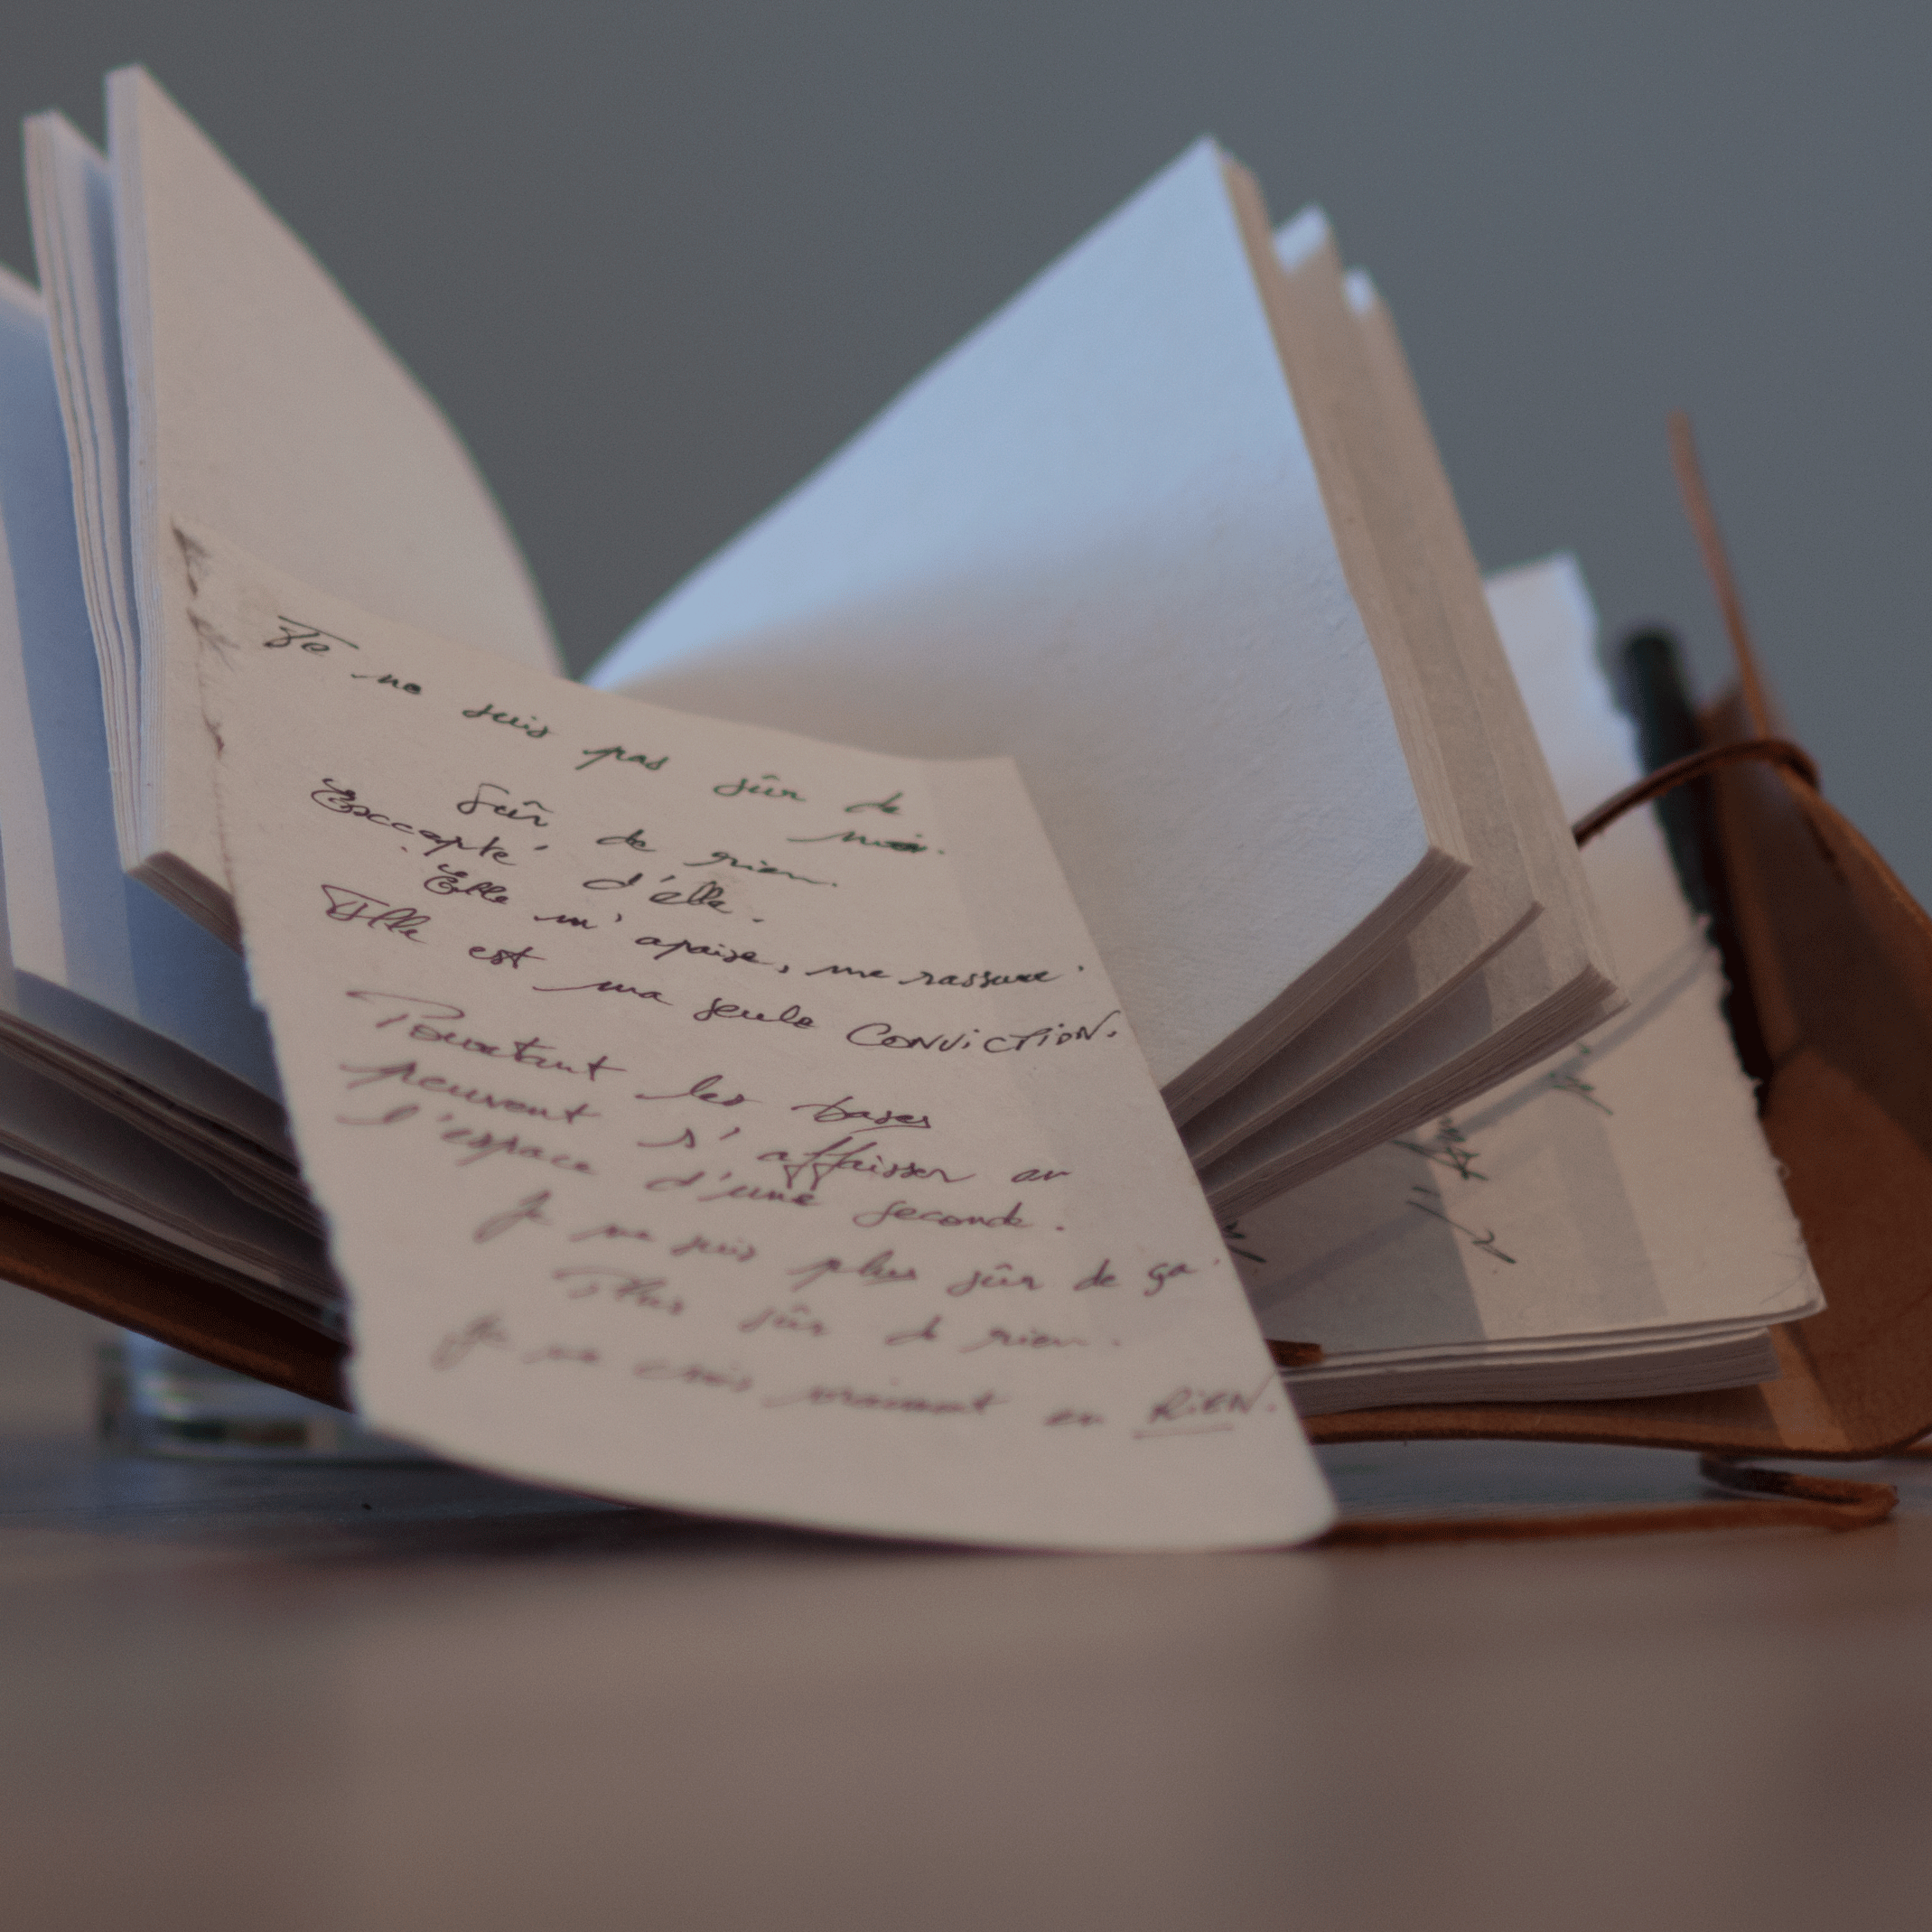 Je ne suis pas sûr de
moi.
Sûr de rien.
Exccepté d'elle.
Elle m'apaise, me rassure.
Elle est ma seule CONVICTION.
Pourtant les bases
peuvent s'affaisser en
l'espace d'une seconde.
Je ne suis plus sûr de ça.
Plus sûr de rien.
Je ne crois vraiment en RIEN.